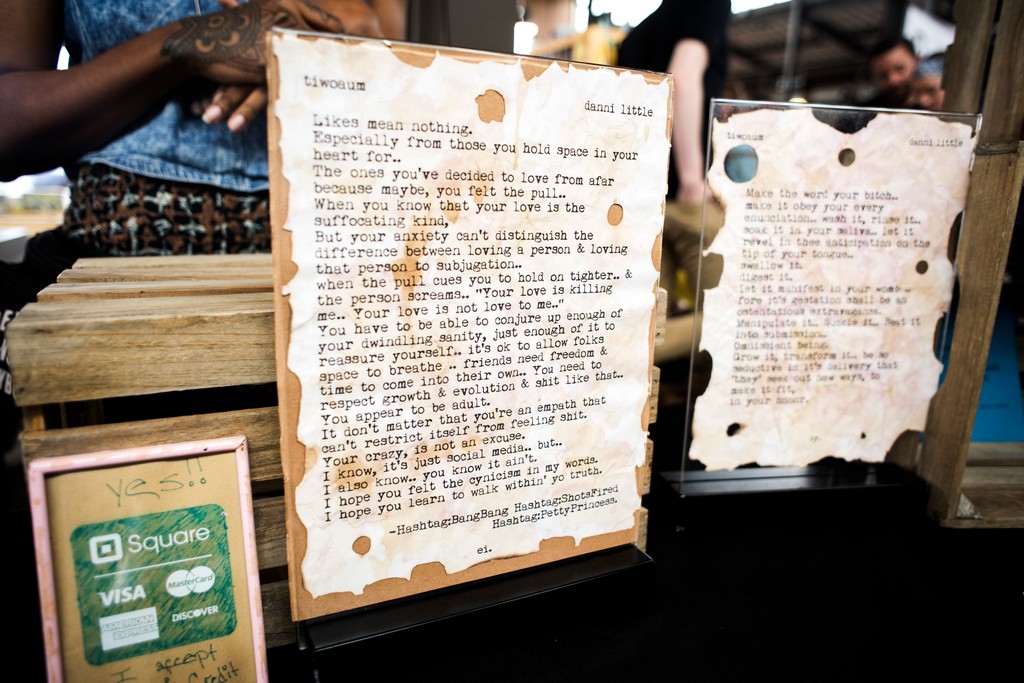 tiwoaum
danni little
Likes mean nothing.
Especially from those you hold space in your
heart for..
The ones you've decided to love from afar
because maybe, you felt the pull..
When you know that your love is the
suffocating kind,
But your anxiety can't distinguish the
difference between loving a person & loving
that person to subjugation..
when the pull cues you to hold on tighter.. &
the person screams.. "Your love is killing
me.. Your love is not love to me.."
You have to be able to conjure up enough of
your dwindling sanity, just enough of it to
reassure yourself.. it's ok to allow folks
space to breathe .. friends need freedom &
time to come into their own.. You need to
respect growth & evolution & shit like that..
You appear to be adult.
It don't matter that you're an empath that
can't restrict itself from feeling shit.
Your crazy, is not an excuse.
I know, it's just social media.. but..
I also know.. you know it ain't.
I hope you felt the cynicism in my words.
I hope you learn to walk within' yo truth.
-Hashtag:BangBang Hashtag:ShotsFired
Hashtag:PettyPrincess.
ei.
tiwoaum
danni little
Make the word your bitch..
make it obey your every
enunciation.. wash it, rinse it..
soak it in your saliva.. let it
revel in thee anticipation on the
tip of your tongue..
swallow it.
digest it.
let it manifest in your womb ..
fore it's gestation shall be an
ostentatious extravagance.
Manipulate it.. Suckle it.. Beat it
into submission..
Omniscient being.
Grow it, transform it.. be so
seductive in it's delivery that
'they' seek out new ways, to
make it fit.
in your honor.
yes!!
Square
VISA
MasterCard
AMERICAN
EXPRESS
DISCOVER
I accept
Credit